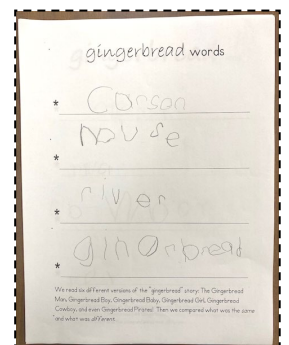 gingerbread words
* Carson
house
*
river
*
gingerbread
*
We read six different versions of the "gingerbread" story: The Gingerbread
Man, Gingerbread Boy, Gingerbread Baby, Gingerbread Girl, Gingerbread
Cowboy, and even Gingerbread Pirates! Then we compared what was the same
and what was different.